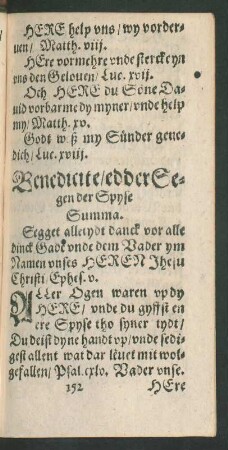 HERE help vns / wy vorder-
uen / Matth. viij.
HEre vormehre vnde stercke yn
vns den Gelouen / Luc. xvij.
Och HERE du Sone Da-
uid vorbarme dy myner / vnde help
my / Matth. xv.
Godt w ß my Sünder gene-
dich / Luc. xviij.
Benedicite / edder Se-
gen der Spyse
Summa.
Segget alletydt danck vor alle
dinck Gade vnde dem Vader ym
Namen vnses HEREN Jhesu
Christi Ephes. v.
ALLer Ogen waren vp dy
HERE / vnde du gyffst en
ere Spyse tho syner tydt /
Du deist dyne handt vp / vnde sedi-
gest allent wat dar leuet mit wol-
gefallen / Psal. cxlv. Vader vnse.
152 HEre